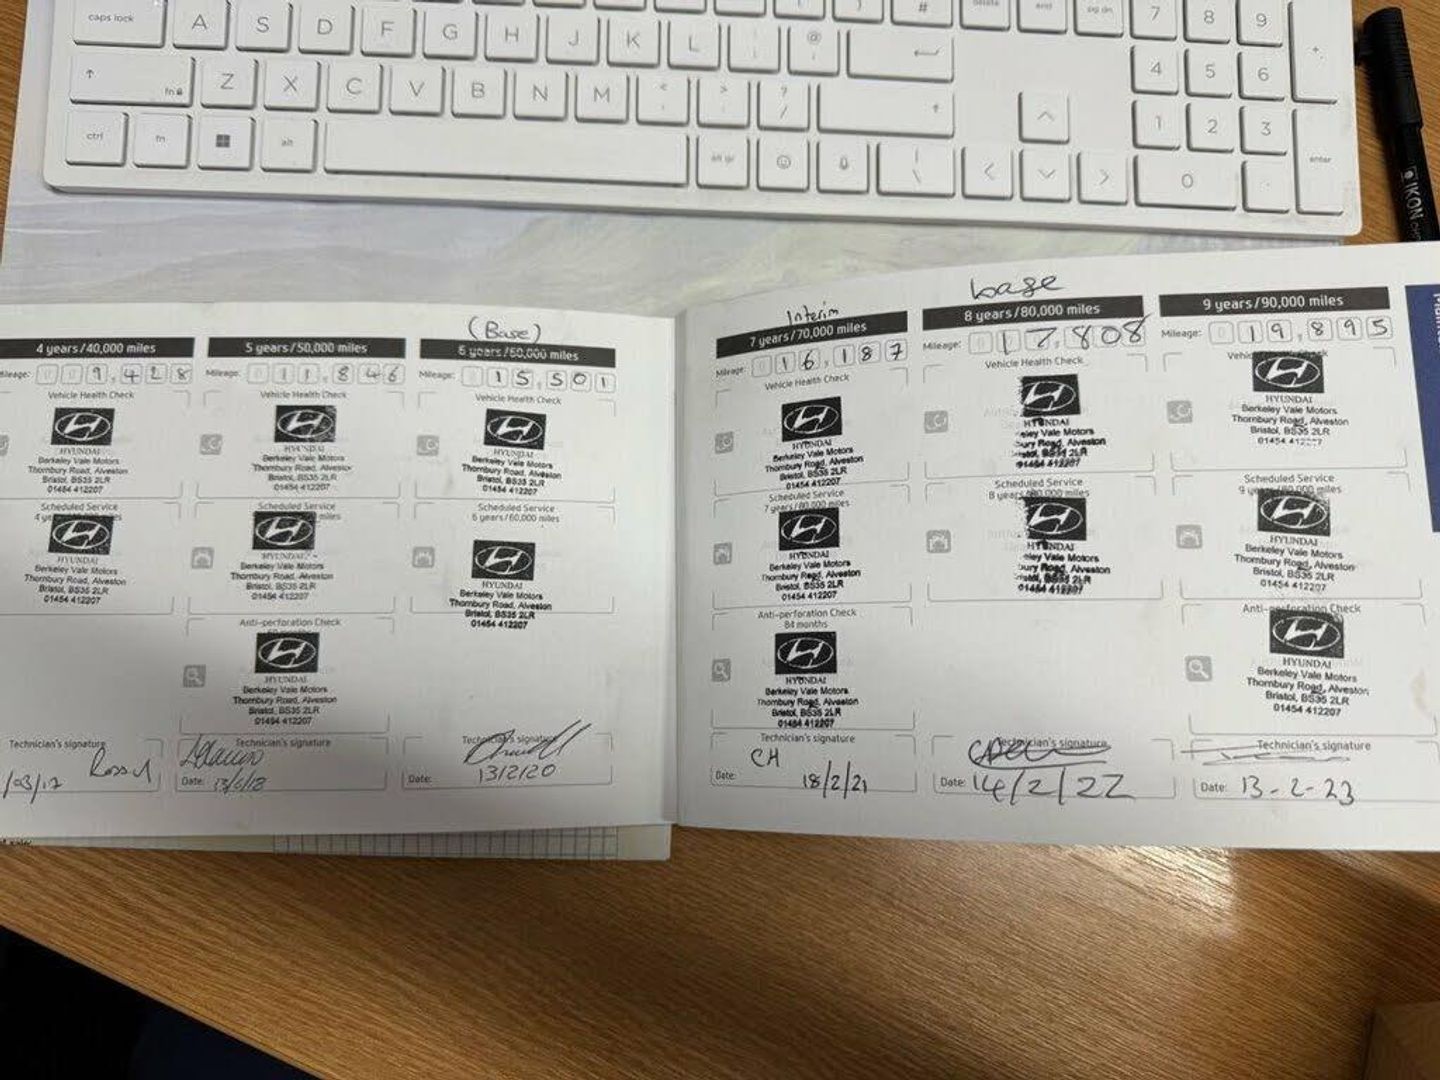 caps lock
A S D F G H J K L @ # delete end pg dn 7 8 9 +
fn Z X C V B N M < > ? / 4 5 6
ctrl fn alt alt gr | \ 1 2 3 enter
0 .
IKON
(Base)
4 years/40,000 miles
Mileage: 0 0 9,428
Vehicle Health Check
HYUNDAI
Berkeley Vale Motors
Thornbury Road, Alveston
Bristol, BS35 2LR
01454 412207
Scheduled Service
HYUNDAI
Berkeley Vale Motors
Thornbury Road, Alveston
Bristol, BS35 2LR
01454 412207
Technician's signature
/03/17
5 years/50,000 miles
Mileage: 0 11,846
Vehicle Health Check
HYUNDAI
Berkeley Vale Motors
Thornbury Road, Alveston
Bristol, BS35 2LR
01454 412207
Scheduled Service
miles
HYUNDAI
Berkeley Vale Motors
Thornbury Road, Alveston
Bristol, BS35 2LR
01454 412207
Anti-perforation Check
HYUNDAI
Berkeley Vale Motors
Thornbury Road, Alveston
Bristol, BS35 2LR
01454 412207
Technician's signature
Date:
6 years/60,000 miles
Mileage: 15,501
Vehicle Health Check
HYUNDAI
Berkeley Vale Motors
Thornbury Road, Alveston
Bristol, BS35 2LR
01454 412207
Scheduled Service
6 years/60,000 miles
HYUNDAI
Berkeley Vale Motors
Thornbury Road, Alveston
Bristol, BS35 2LR
01454 412207
Technician's signature
Date: 13/2/20
Interim
7 years/70,000 miles
Mileage: 0 16,187
Vehicle Health Check
HYUNDAI
Berkeley Vale Motors
Thornbury Road, Alveston
Bristol, BS35 2LR
01454 412207
Scheduled Service
HYUNDAI
Berkeley Vale Motors
Thornbury Road, Alveston
Bristol, BS35 2LR
01454 412207
Anti-perforation Check
84 months
HYUNDAI
Berkeley Vale Motors
Thornbury Road, Alveston
Bristol, BS35 2LR
01454 412207
Technician's signature
CH
Date: 18/2/21
base
8 years/80,000 miles
Mileage: 17,808
Vehicle Health Check
HYUNDAI
Vale Motors
Road, Alveston
BS35 2LR
01454 412207
Scheduled Service
8 years/80,000 miles
HYUNDAI
Vale Motors
Road, Alveston
BS35 2LR
01454 412207
Technician's signature
Date: 14/2/22
9 years/90,000 miles
Mileage: 0 19,895
HYUNDAI
Berkeley Vale Motors
Thornbury Road, Alveston
Bristol, BS35 2LR
01454 412207
Scheduled Service
9 years/90,000 miles
HYUNDAI
Berkeley Vale Motors
Thornbury Road, Alveston
Bristol, BS35 2LR
01454 412207
Anti-perforation Check
HYUNDAI
Berkeley Vale Motors
Thornbury Road, Alveston
Bristol, BS35 2LR
01454 412207
Technician's signature
Date: 13-2-23